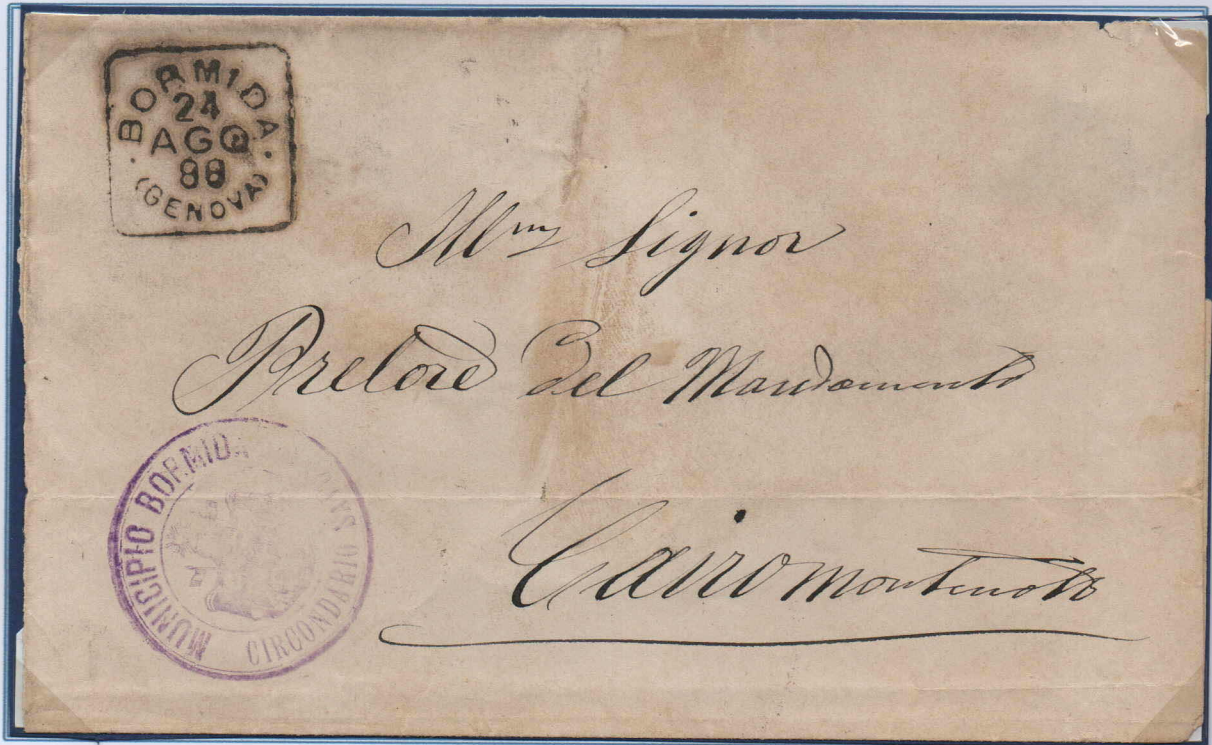 ·BORMIDA·
24
AGO
88
(GENOVA)
Ill<sup>mo</sup> Signor
Pretore del Mandamento
Cairo Montenotte
MUNICIPIO BORMIDA
CIRCONDARIO